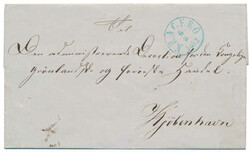 Den administrerende Direction for den Kongelige
grønlandske og færøiske Handel.
Kjöbenhavn